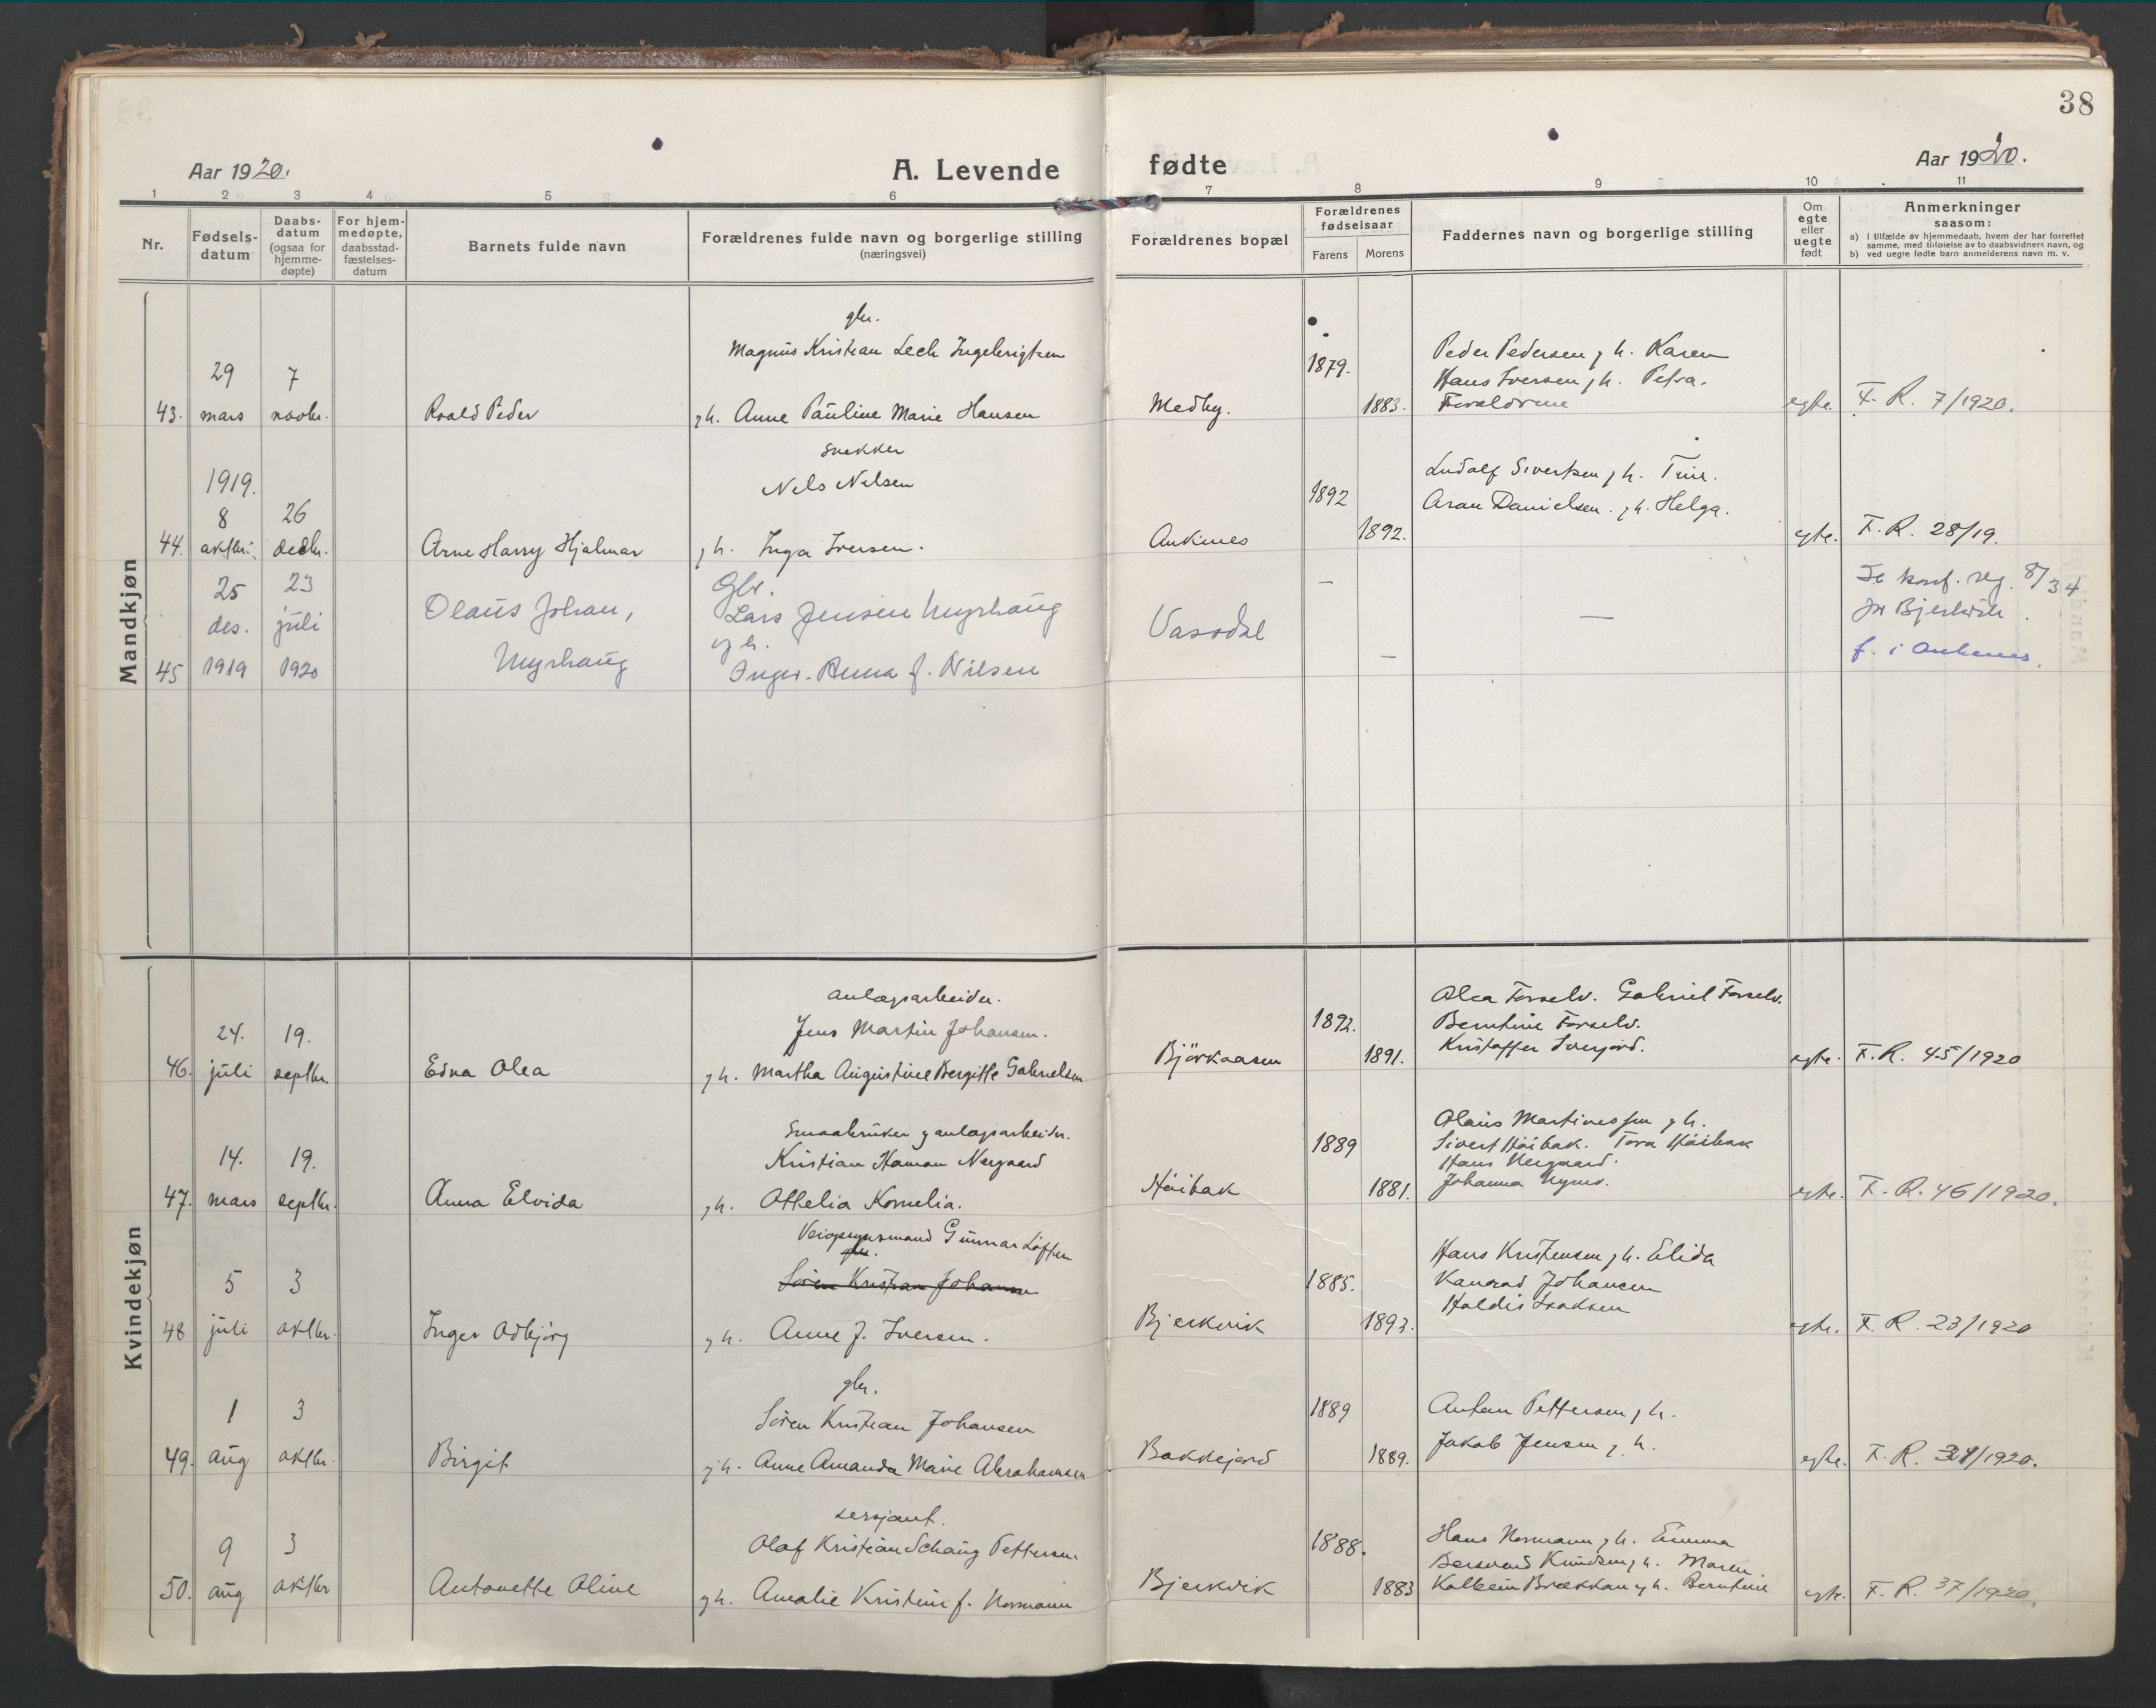 38
Aar 1920.
A. Levende fødte
Aar 1920.
1 2 3 4 5 6 7 8 9 10 11
Nr.
Fødselsdatum
Daabsdatum (ogsaa for hjemmedøpte)
For hjemmedøpte, daabsstadfæstelsesdatum
Barnets fulde navn
Forældrenes fulde navn og borgerlige stilling (næringsvei)
Forældrenes bopæl
Forældrenes fødselsaar
Farens Morens
Faddernes navn og borgerlige stilling
Om egte eller uegte født
Anmerkninger saasom:
a) i tilfælde av hjemmedaab, hvem der har forrettet samme, med tilføielse av to daabsvidners navn, og
b) ved uegte fødte barn anmelderens navn m. v.
Mandkjøn
gbr.
Magnus Kristian Lech Ingebrigtsen
29 7
43. mars novbr. Roald Peder g h. Anne Pauline Marie Hansen
Medby. 1879. 1883.
Peder Pedersen g h. Karen
Hans Iversen g h. Petra.
Forældrene
egte. F. R. 7/1920.
snekker
1919. Nels Nelsen
8 26
44. oktbr. decbr. Arne Harry Hjalmar g h. Inga Iversen.
Ankenes 1892 1892.
Ludolf Sivertsen g h. Trine.
Aron Danielsen. g h. Helga.
egte. F. R. 28/19.
25 23 Gbr.
des. juli Olaus Johan, Lars Jensen Myrhaug
og h.
45 1919 1920 Myrhaug Inger. Anna f. Nilsen
Vassdal — — —
Se konf. reg. 8/34
for Bjerkvik.
f. i Ankenes.
Kvindekjøn
anlægsarbeider.
24. 19. Jens Martin Johansen.
46. juli septbr. Edna Olea g h. Martha Augustine Bergitte Gabrielsen
Björkaasen 1892. 1891.
Olea Forselv. Gabriel Forselv.
Berntine Forselv.
Kristoffer Iverjord.
egte. F. R. 45/1920
Smaabruker g anlægsarbeider.
14. 19. Kristian Haman Nergaard
47. mars septbr. Anna Elvida g h. Othelia Kornelia.
Höibak 1889 1881.
Olaus Martinessen g h.
Sivert Höibak. Tora Höibak
Hans Nergaard.
Johanna
egte. F. R. 46/1920.
Veiopsynsmand Gunnar Løften
gbr.
5 3 Sören Kristian Johansen
48 juli oktbr. Inger Odbjörg g h. Anne J. Iversen.
Bjerkvik 1885. 1893.
Hans Kristensen g h. Elida
Konrad Johansen
Haldis Isaksen
egte. F. R. 23/1920
gbr.
1 3 Sören Kristian Johansen
49. aug oktbr. Birgit g h. Anne Amanda Marie Abrahamsen
Bakkejord 1889 1889.
Anton Pettersen g h.
Jakob Jensen g. h.
egte. F. R. 31/1920.
sersjant.
9 3 Olaf Kristian Schaug Pettersen
50. aug oktbr Antonette Oline g h. Amalie Kristine f. Normann
Bjerkvik 1888. 1883
Hans Normann g h. Emma
Bersvend Knudsen g h. Maren
Kolbein Brækkan g h. Berntine
egte. F. R. 37/1920.